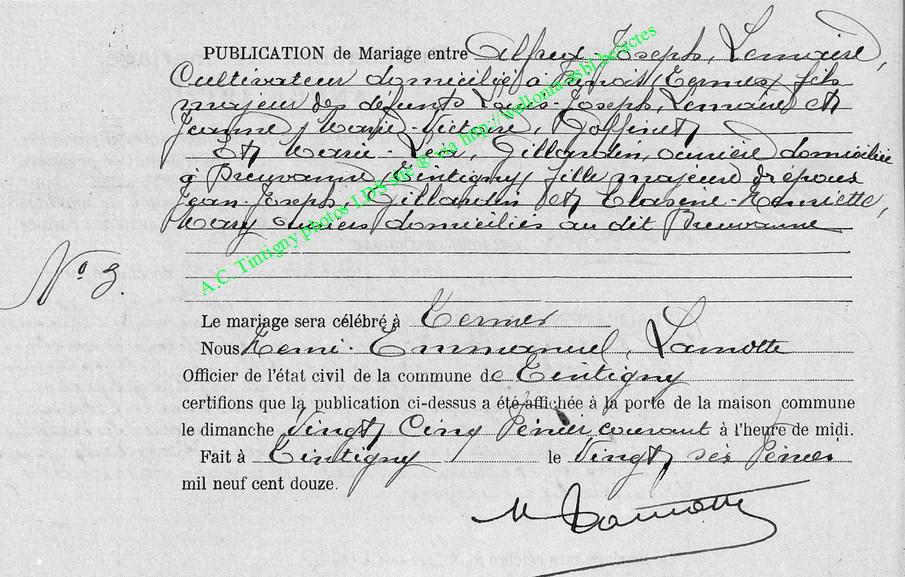 PUBLICATION de Mariage entre Alfred-Joseph, Lemaire,
Cultivateur domicilié à (Termes) fils
majeur des défunts Louis-Joseph, Lemaire et
Jeanne, Marie-Victoire,
Et Marie-Léa, Gillardin, ouvrière domiciliée
à Breuvanne, (Tintigny) fille majeure d'époux
Jean-Joseph, Gillardin et Henriette,
ouvriers domiciliés au dit Breuvanne
N° 3.
Le mariage sera célébré à Termes
Nous Emmanuel, Lamotte
Officier de l'état civil de la commune de Tintigny
certifions que la publication ci-dessus a été affichée à la porte de la maison commune
le dimanche Vingt Cinq courant à l'heure de midi.
Fait à Tintigny le Vingt
mil neuf cent douze.
Lamotte
A.C. Tintigny photos LDS site ® via http://wellonia asbl be/actes